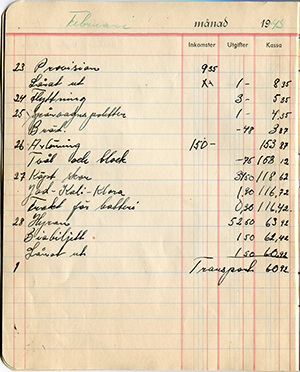 Februari månad 1943
Inkomster Utgifter Kassa
23 Provision 9 35
Lånat ut 1 - 8 35
24 Flyttning 3 - 5 35
25 Spårvagnspolletter 1 - 4 35
Bröd -48 3 87
26 Avlöning 150 - 153 87
Tvål och block -75 153 12
27 Köpt skor 34 50 118 62
Jod-Kali-Klora 1,90 116,72
Frakt för batteri 0,30 116,42
28 Hyran 52 50 63 92
Biobiljett 1 50 62,42
Lånat ut 1 50 60,92
Transport 60 92